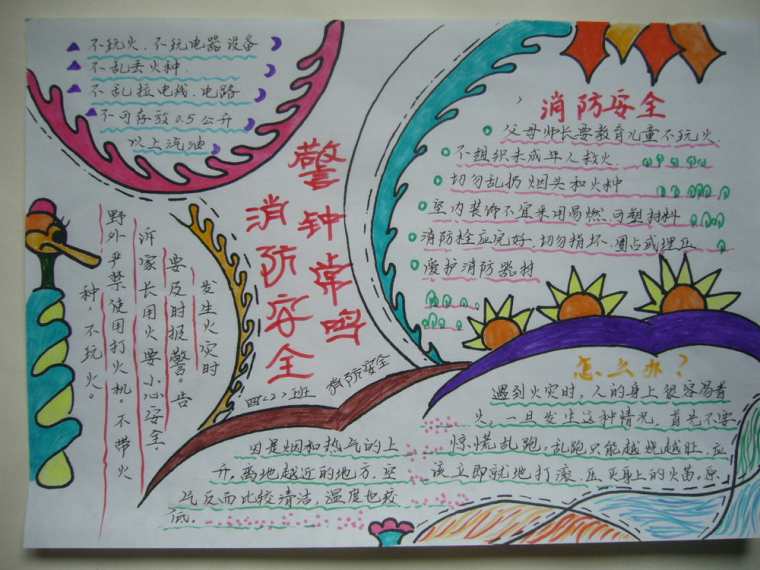 不玩火、不玩电器设备
不乱丢火种、
不乱拉电线、电路
不可存放0.5公升
以上汽油
警钟常鸣
消防安全
四<2>班
消防安全
消防安全
父母师长要教育儿童不玩火
不组织未成年人救火
切勿乱扔烟头和火种
室内装饰不宜采用易燃、可塑材料
消防栓应完好、切勿损坏、圈占或埋压
爱护消防器材
发生火灾时
要及时报警。告
诉家长用火要小心安全.
野外严禁使用打火机。不带火
种，不玩火。
怎么办？
遇到火灾时，人的身上很容易着
火。一旦发生这种情况，首先不要
惊慌乱跑。乱跑只能越烧越旺、应
该立即就地打滚、压灭身上的火苗。
因是烟和热气的上
升。离地越近的地方，空
气反而比较清洁，温度也较
低。